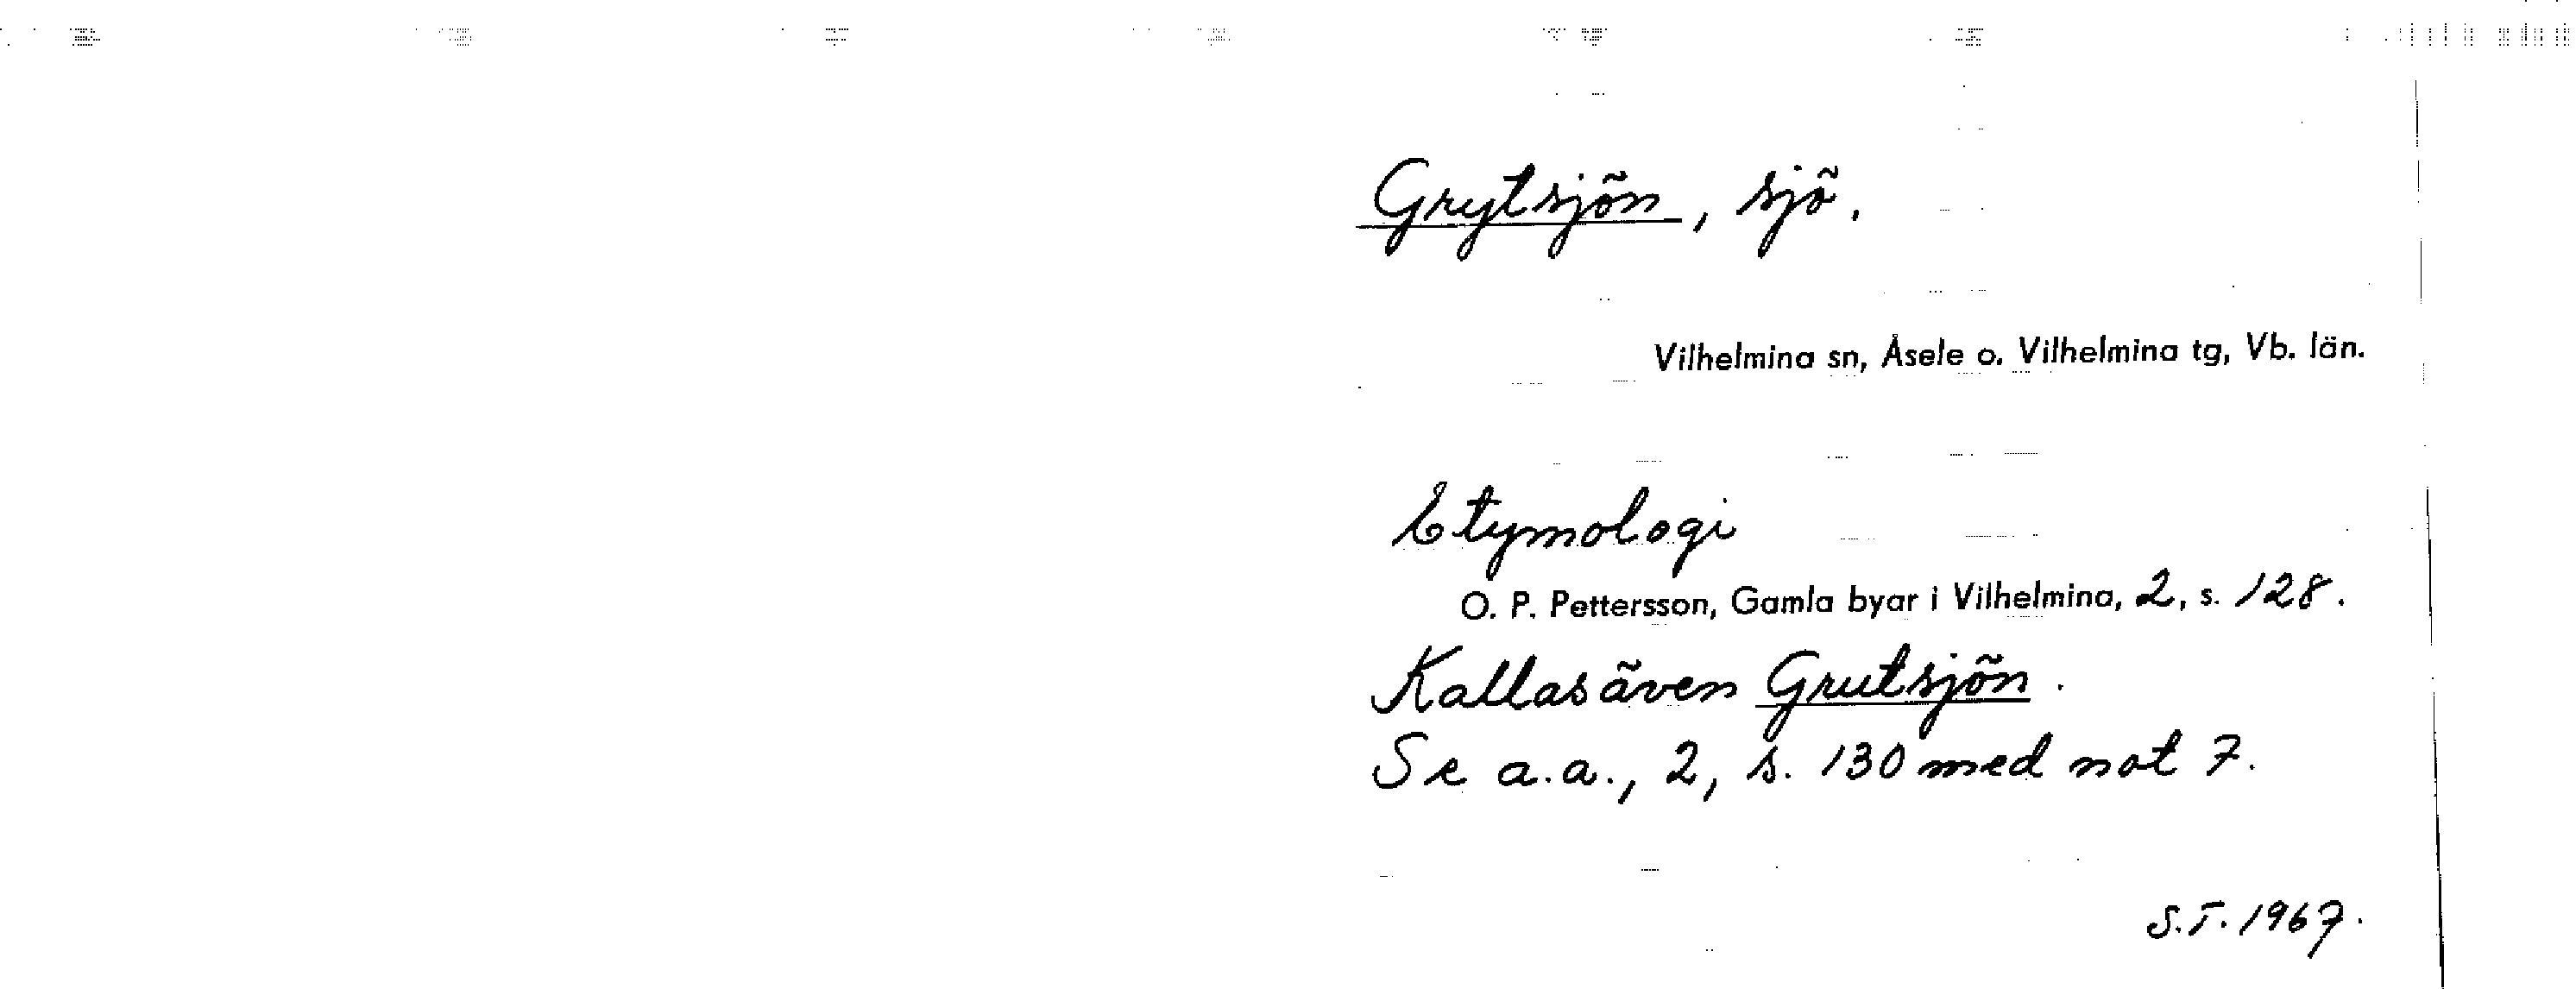 Grytsjön, sjö.
Vilhelmina sn, Åsele o. Vilhelmina tg, Vb. län.
Etymologi
O. P. Pettersson, Gamla byar i Vilhelmina, 2, s. 128.
Kallas även Grutsjön.
Se a.a., 2, s. 130 med not 7.
S.T. 1967.